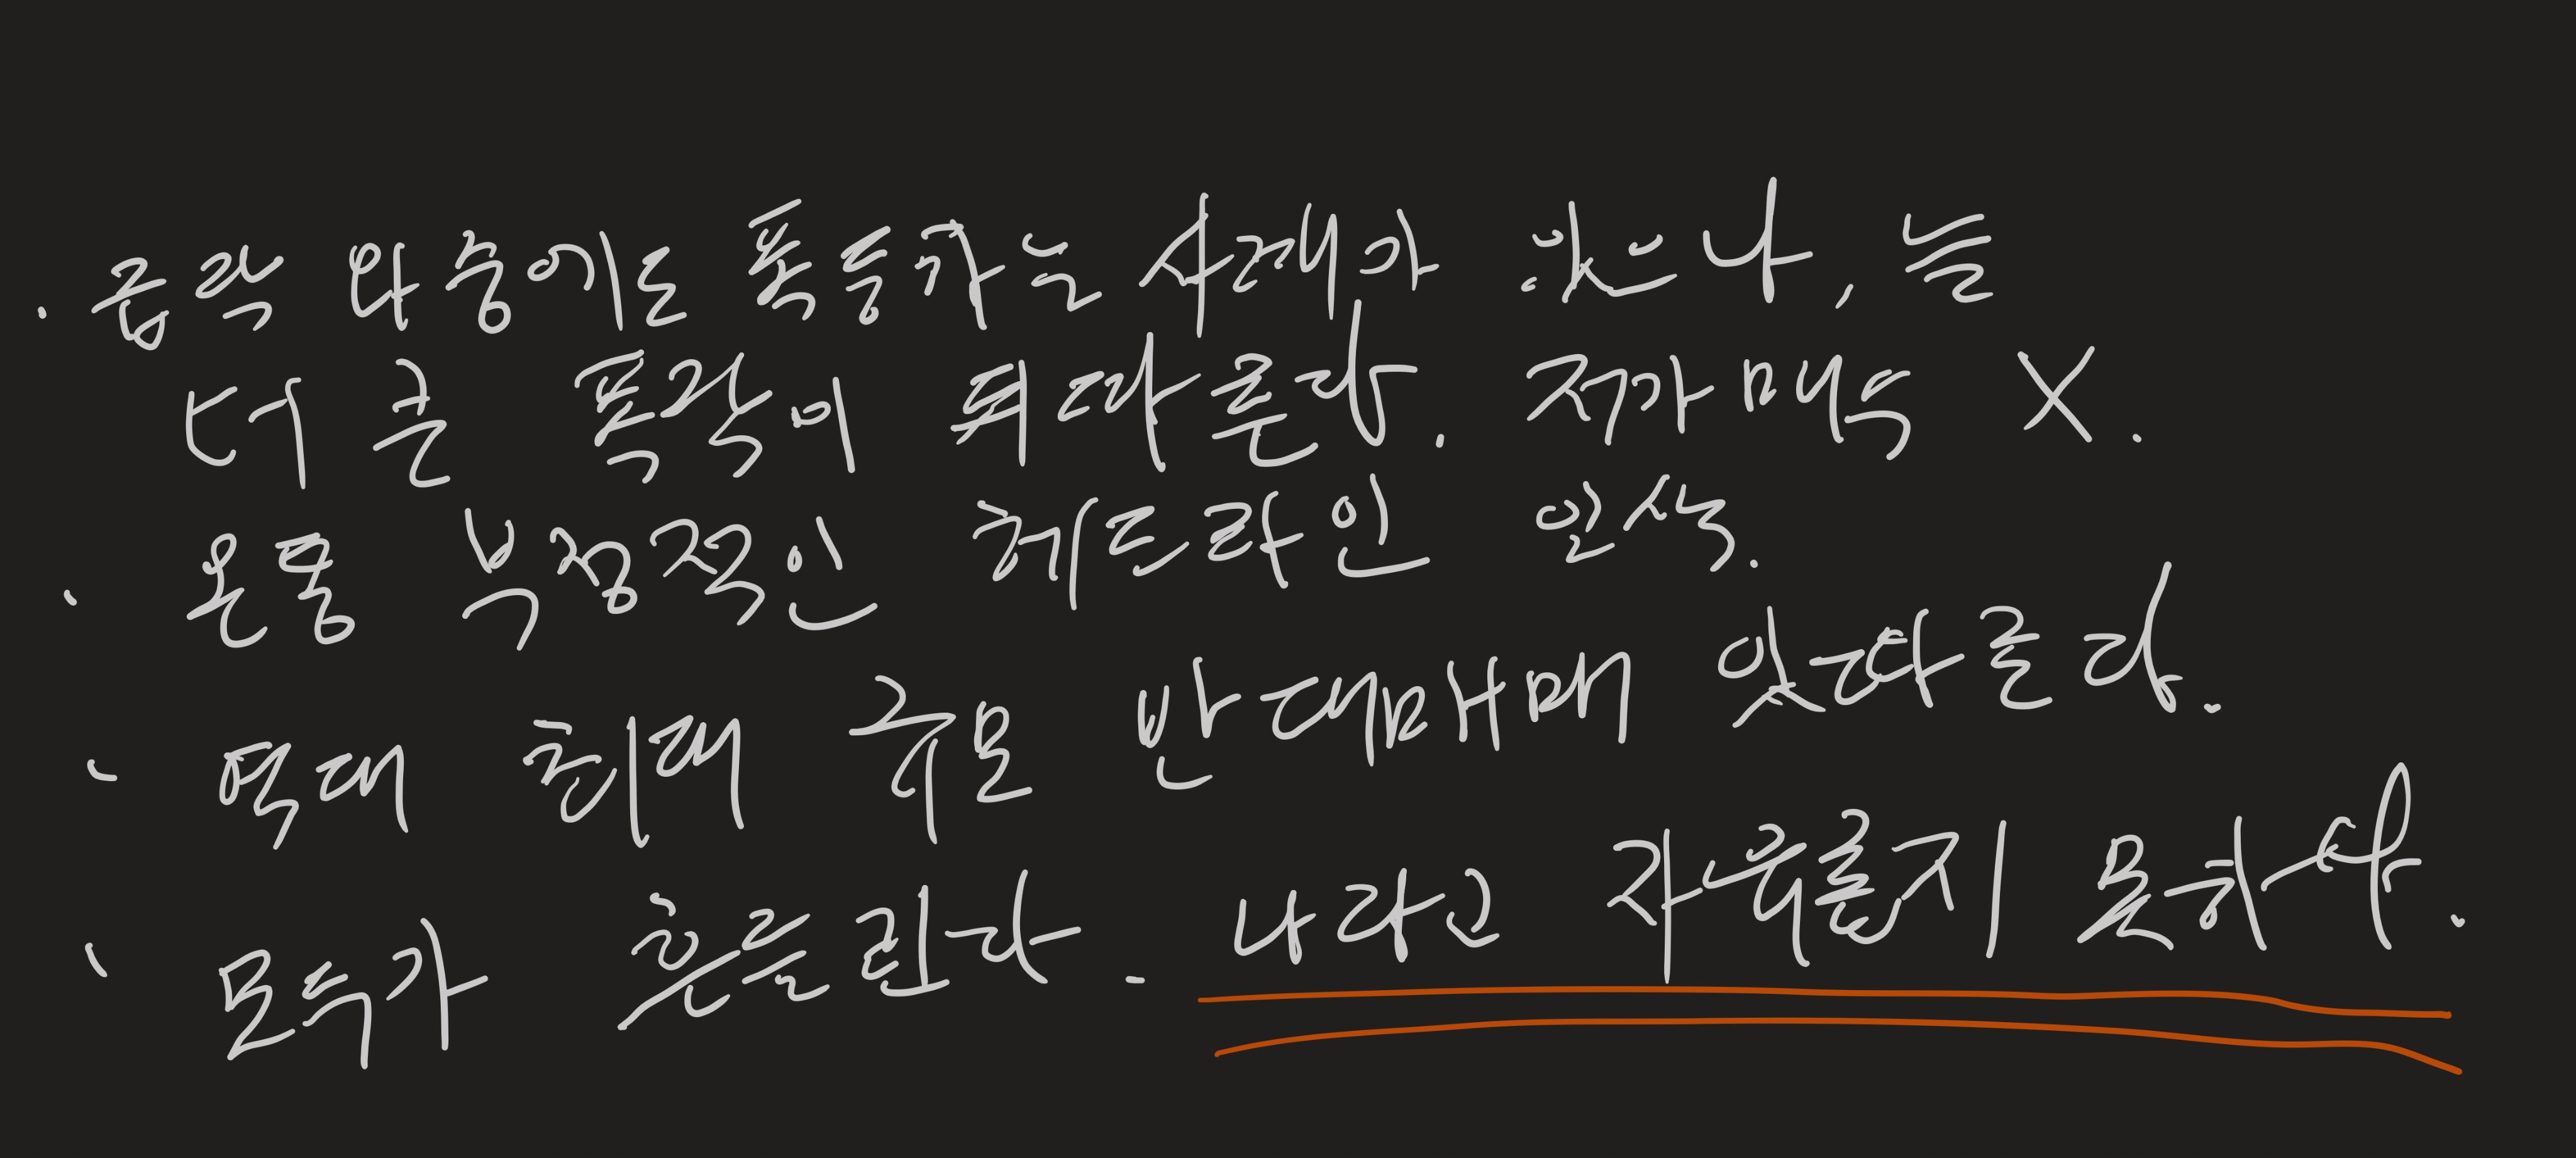 · 급락 와중에도 폭등하는 사례가 있으나, 늘
더 큰 폭락이 뒤따른다. 저가매수 X.
· 온통 부정적인 헤드라인 일색.
· 역대 최대 규모 반대매매 잇따른다.
· 모두가 흔들린다. 나라고 자유롭지 못하다.